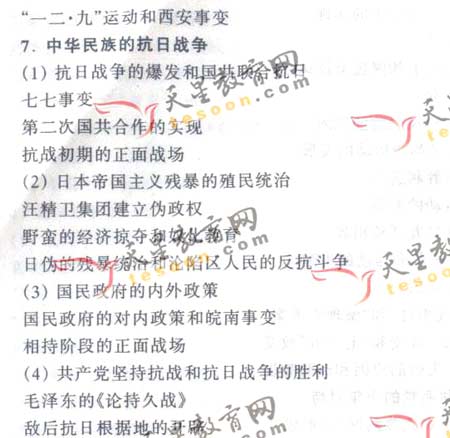 “一二·九”运动和西安事变
7. 中华民族的抗日战争
(1) 抗日战争的爆发和国共联合抗日
七七事变
第二次国共合作的实现
抗战初期的正面战场
(2) 日本帝国主义残暴的殖民统治
汪精卫集团建立伪政权
野蛮的经济掠夺和奴化教育
日伪的残暴统治和沦陷区人民的反抗斗争
(3) 国民政府的内外政策
国民政府的对内政策和皖南事变
相持阶段的正面战场
(4) 共产党坚持抗战和抗日战争的胜利
毛泽东的《论持久战》
敌后抗日根据地的开辟
天星教育网
tesoon.com
天星教育网
tesoon.com
天星教育网